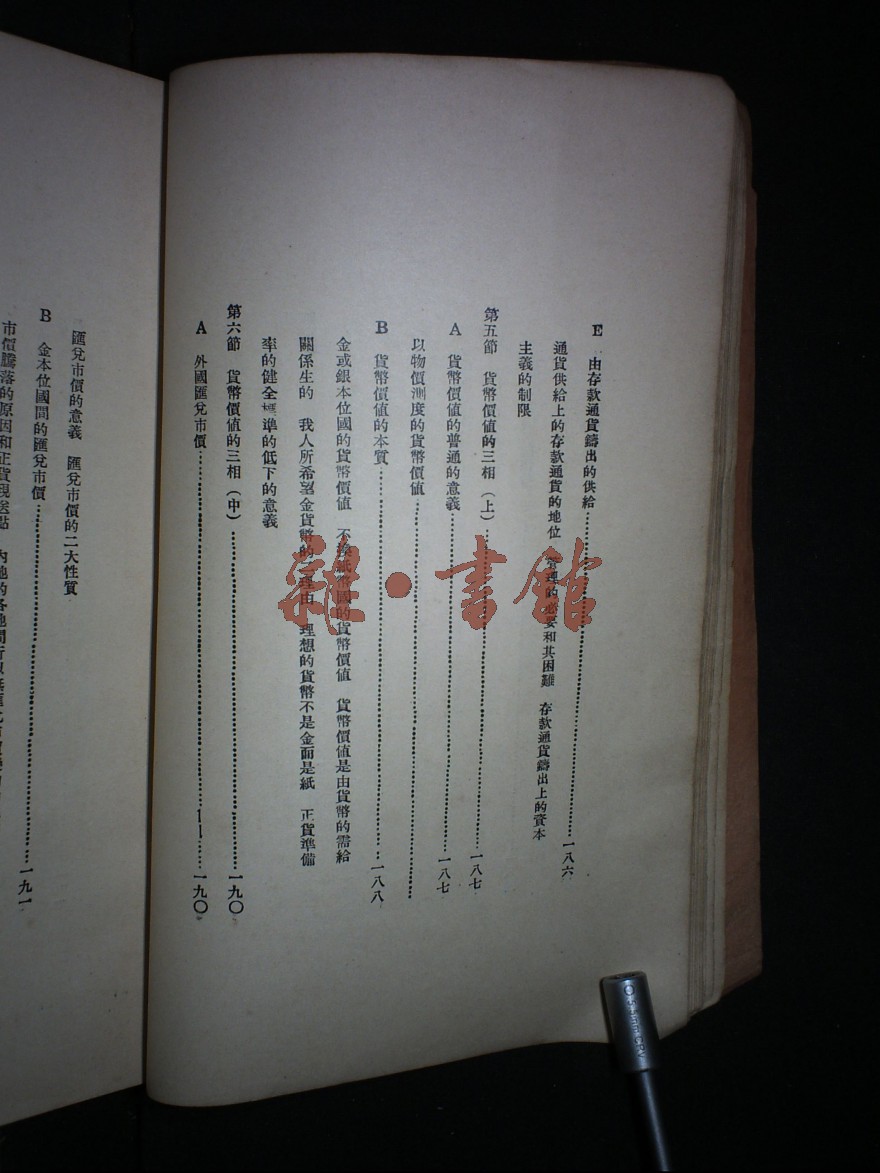 E 由存款通貨鑄出的供給……一八六
通貨供給上的存款通貨的地位 管理的必要和其困難 存款通貨鑄出上的資本
主義的制限
第五節 貨幣價値的三相（上）……一八七
A 貨幣價値的普通的意義……一八七
以物價測度的貨幣價値……
B 貨幣價値的本質……一八八
金或銀本位國的貨幣價値 不換紙幣國的貨幣價値 貨幣價値是由貨幣的需給
關係生的 我人所希望金貨幣的二理由 理想的貨幣不是金而是紙 正貨準備
率的健全標準的低下的意義
第六節 貨幣價値的三相（中）……一九〇
A 外國匯兌市價……一九〇
匯兌市價的意義 匯兌市價的二大性質
B 金本位國間的匯兌市價……一九一
市價騰落的原因和正貨現送點 內地的各地間所以無匯兌
雜·書館